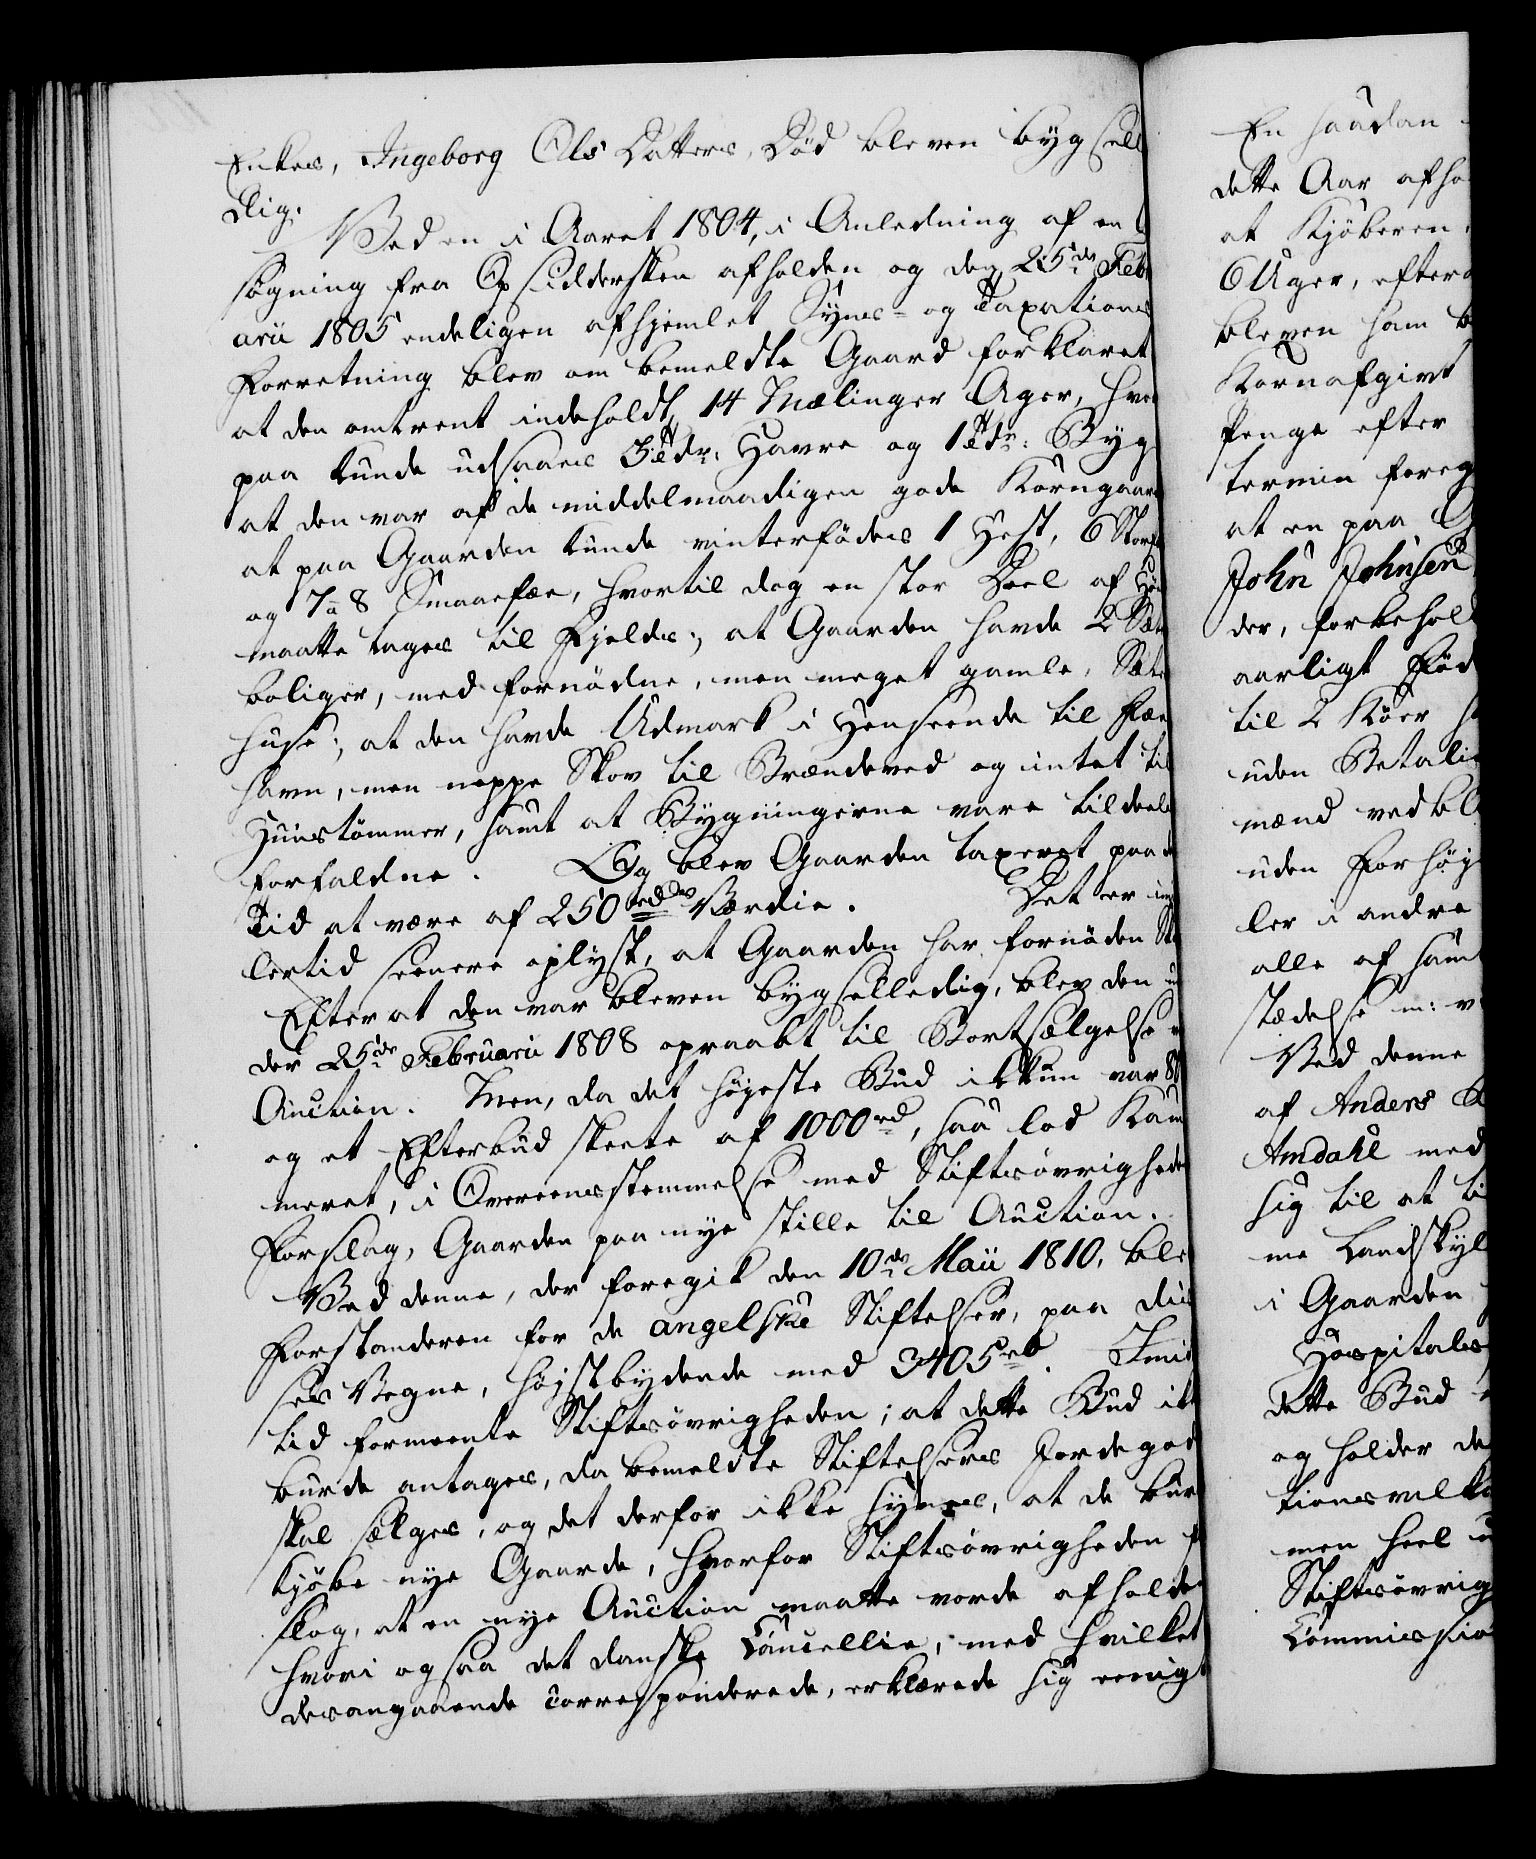 Enkes, Ingeborg Ols Datters, Død bleven bygsell
dig.
Ved en i Aaret 1804, i Anledning af en
søgning fra Opsidersken afholden og den 25de Feb
arii 1805 endeligen afhjemlet Syns- og Taxations
Forretning blev om bemeldte Gaard forklaret
at den omtrent indeholdt 14 Mælinger Ager, hvor
paa kunde udsaaes 3 Tdr. Havre og 1 Tdr: Byg
at den var af de middelmaadigen gode Korngaar
at paa Gaarden kunde vinterfødes 1 Hest, 6 Storf
og 7 a 8 Smaafæe, hvortil dog en stor Deel af Hø
maatte tages til Fjelds; at Gaarden havde 2 Sæt
boliger, med fornødne, men meget gamle, Sæt
huse; at den havde Udmark i Henseende til Fæe
havn, men neppe Skov til Brændeved og intet til
Huustømmer, samt at Bygningerne vare tildeels
forfaldne. Og blev Gaarden taxeret paa d
Tid at være af 250 rdles Værdie. Det er im
lertid seenere oplyst, at Gaarden har fornøden Sk
Efter at den var bleven bygselledig, blev den u
der 25de Februarii 1808 opraabt til Bortsælgelse
Auction. Men, da det høyeste Bud ikkun var 8
og et Efterbud skeete af 1000 rd, saa lod Kam
meret, i Overeensstemmelse med Stiftsøvrighede
Forslag, Gaarden paa nye stille til Auction.
Ved denne, der foregik den 10de Maii 1810, ble
Forstanderen for de angelske Stiftelser, paa dis
ses Vegne, højstbydende med 3405 rd. Imid
tid formeente Stiftsøvrigheden; at dette Bud ikk
burde antages, da bemeldte Stiftelsers Jordegod
skal sælges, og det derfor ikke synes, at de bur
kjøbe nye Gaarde, hvorfor Stiftsøvrigheden f
slog, at en nye Auction maatte vorde afholde
hvori ogsaa det danske Cancellie, med hvilket
desangaaende corresponderede, erklærede sig eenigt
En saadan
dette Aar afho
at Kjøberen
6 Uger, eftera
bleven ham b
Kornafgivt
Penge efter
termin foreg
at en paa G
John Johnsen
der, forbehol
aarligt Fød
til 2 Køer h
uden Betalin
mænd vedbl
uden Forhøj
ler i andre
alle af sam
stædelse m: v
Ved denne
af Anders
Amdahl med
sig til at ti
me Landskyl
i Gaarden
Hospitals
dette Bud
og holder de
tionsvilka
men heel u
Stiftsøvrig
Commissio